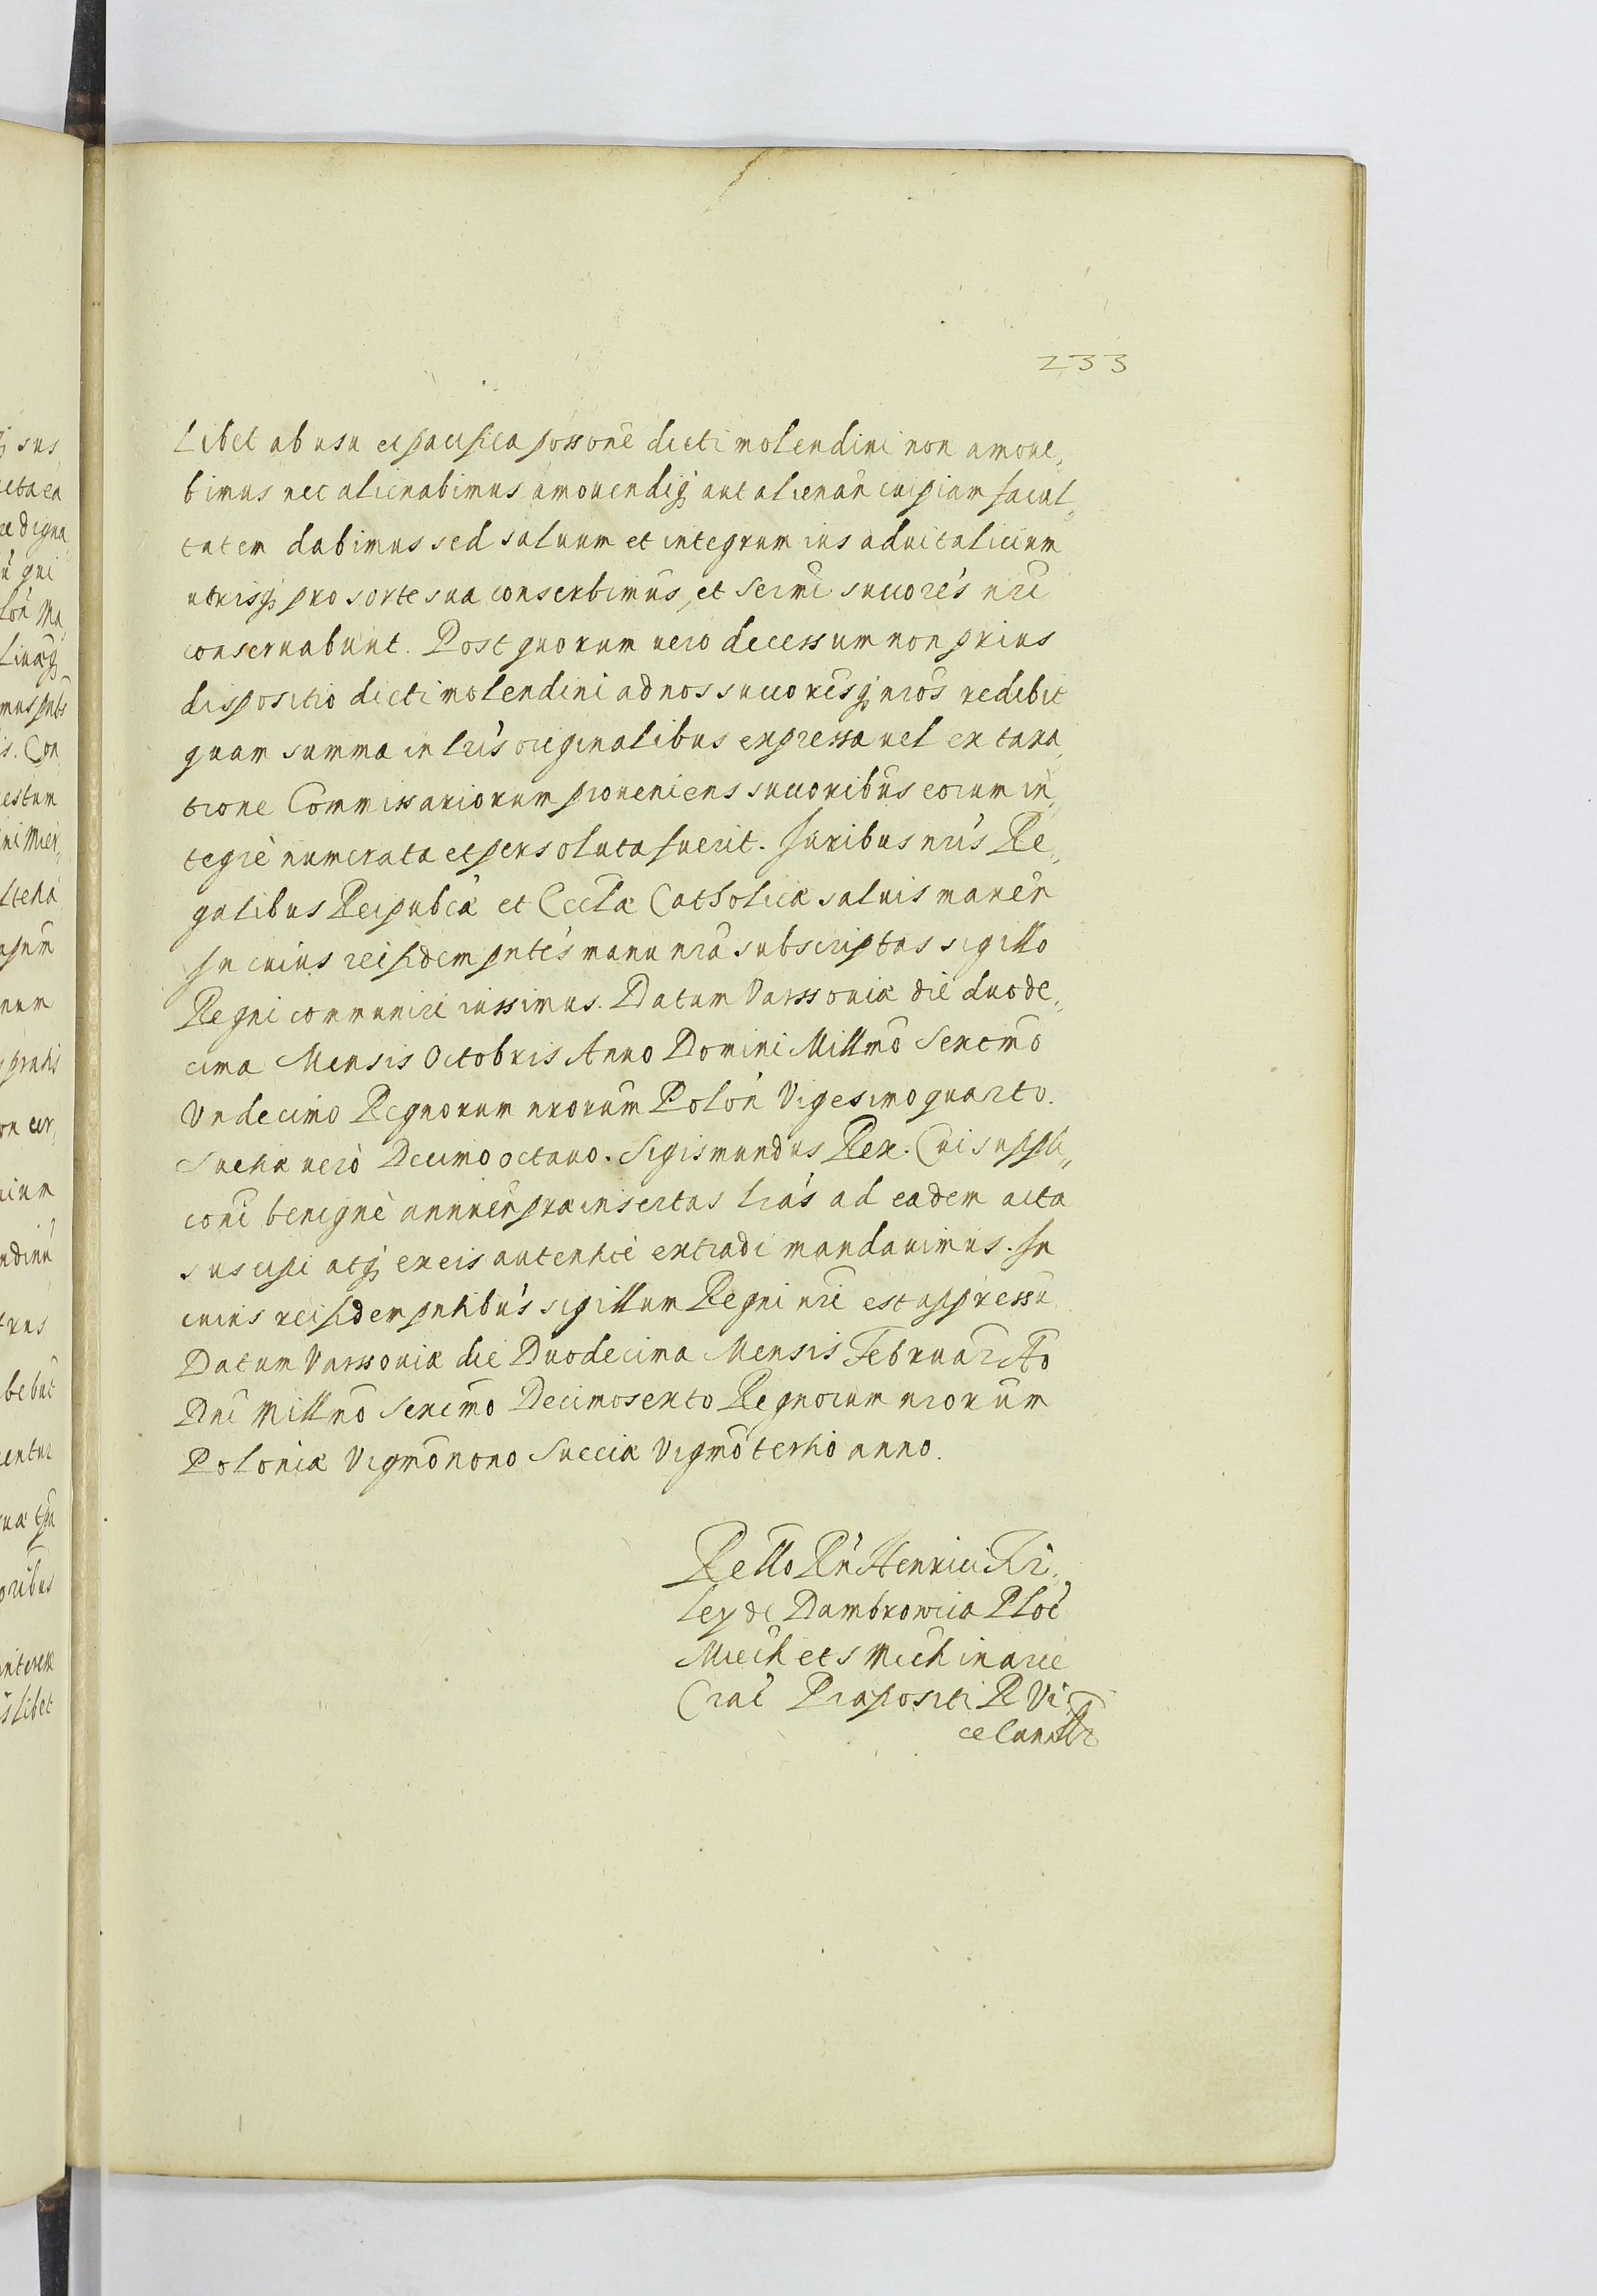 233
libet ab usu et pacifica possone dicti molendini non amoue„
bimus nec alienabimus amouendiq aut alienan cuipiam facul„
tatem dabimus sed saluum et integrum ius aduitalicium
utrisq pro sorte sua conserbimus, et Sermi succores nri
conseruabunt. Post quorum uero decessum non prius
dispositio dicti molendini ad nos succoresq nros redibit
quam summa in lris originalibus expressa uel ex taxa„
tione Commissariorum proueniens succoribus eorum in„
tegrè numerata et persoluta fuerit. Juribus nris Re„
galibus Reipubcæ et Ecclæ Catholicæ saluis manen
In cuius rei fidem pntes manu nra subscriptas sigillo
Regni communiri iussimus. Datum Varssouiæ die duode„
cima Mensis Octobris Anno Domini Millmo Sexcmo
Vndecimo Regnorum nrorum Polon Vigesimo quarto.
Sueciæ uerò Decimo octauo. Sigismundus Rex. Cui suppli„
coni benignè annuen præinsertas lras ad eadem acta
suscipi atq ex eis autenticè extradi mandauimus. In
cuius rei fidem pntibus sigillum Regni nri est appressu
Datum Varssouiæ die Duodecima Mensis Februar Ao
Dni Millmo Sexcmo Decimosexto Regnorum nrorum
Poloniæ Vigmo nono Sueciæ Vigmo tertio anno.
Rello Rn Henrici Fir„
ley de Dambrowica Ploc
Miech et S Mich in arce
Crac Præpositi R Vi„
celarii
sus
digna
qui
Con
estum
num
libet